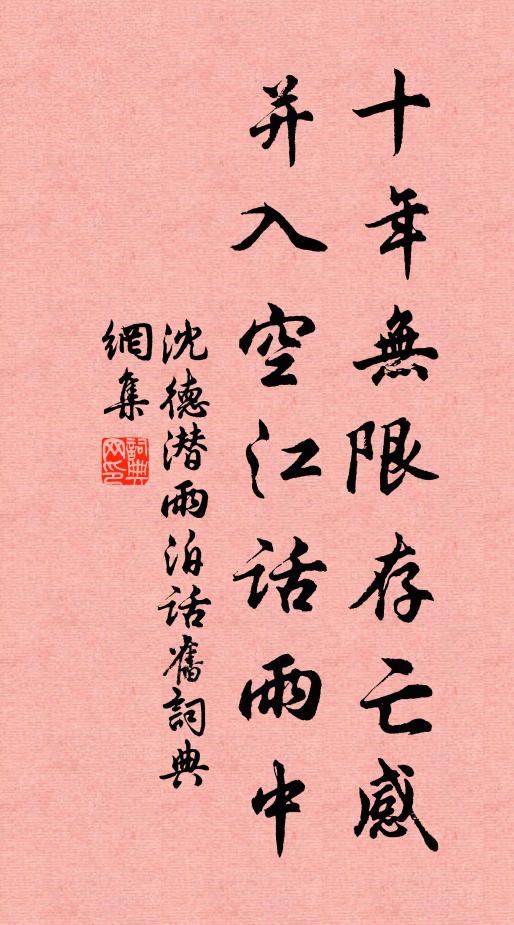 十年無限存亡感
并入空江話雨中
沈德潜雨泊話舊詞典
網集
詞典
网印